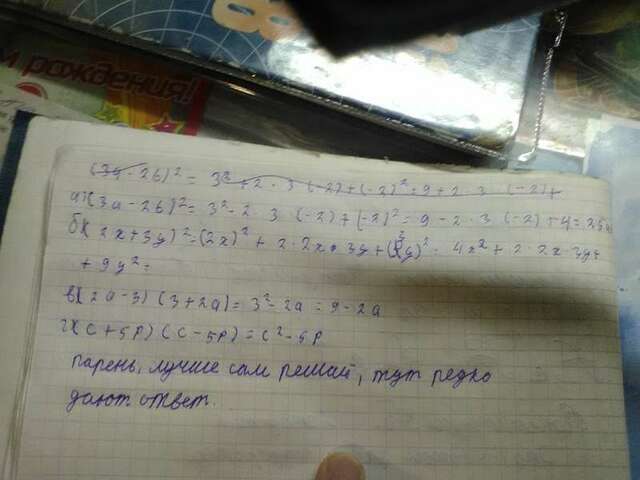 м рождения!
8
(3a - 2b)² = 3² + 2 · 3 (-2) + (-2)² = 9 + 2 · 3 (-2) +
а) (3a - 2b)² = 3² - 2 · 3 (-2) + (-2)² = 9 - 2 · 3 (-2) + 4 = 25
б) (2x + 3y)² = (2x)² + 2 · 2x · 3y + (3y)² = 4x² + 2 · 2x · 3y +
+ 9y² =
в) (2a - 3) (3 + 2a) = 3² - 2a = 9 - 2a
г) (c + 5p) (c - 5p) = c² - 5p
парень, лучше сам решай, тут редко
дают ответ.